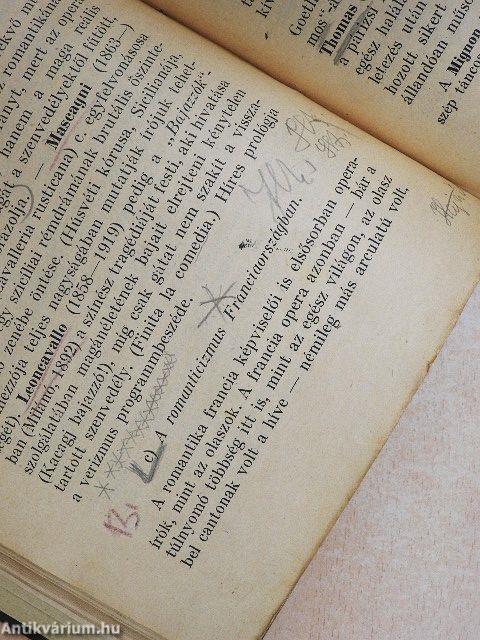 exvő m
romantikána
ányí, mert az opera
hanem a maga reális
a szenvedélyektől fűtött,
Mascagni (1863—)
valleria rusticana) c. egyfelvonásosa
gy szicíliai rémdrámának brutális őszinte-
zerébe öntése. (Húsvéti kórusa, Sicilianája,
mezzója teljes nagyságában mutatják írójuk tehet-
ségét.) Leoncavallo (1858—1919) pedig a „Bajazzók"-
ban (Milano, 1892) a színész tragédiáját festi, aki hivatása
szolgálatában magánéletének bajait elrejteni kénytelen
(Kacagj bajazzó!), míg csak gátat nem szakít a vissza-
tartott szenvedély. (Finita la comedia.) Híres prológja
a verizmus programmbeszéde.
c) A romanticizmus Franciaországban.
A romantika francia képviselői is elsősorban opera-
írók, mint az olaszok. A francia opera azonban — bár a
túlnyomó többség itt is, mint az egész világon, az olasz
bel cantonak volt a híve — némileg más arculatú volt,
13.
Goeth
Thomas
a párizsi
egész halál
letezés után
hozott sikert
állandóan műso
A Mignon
szép táncor
Antikvárium.hu